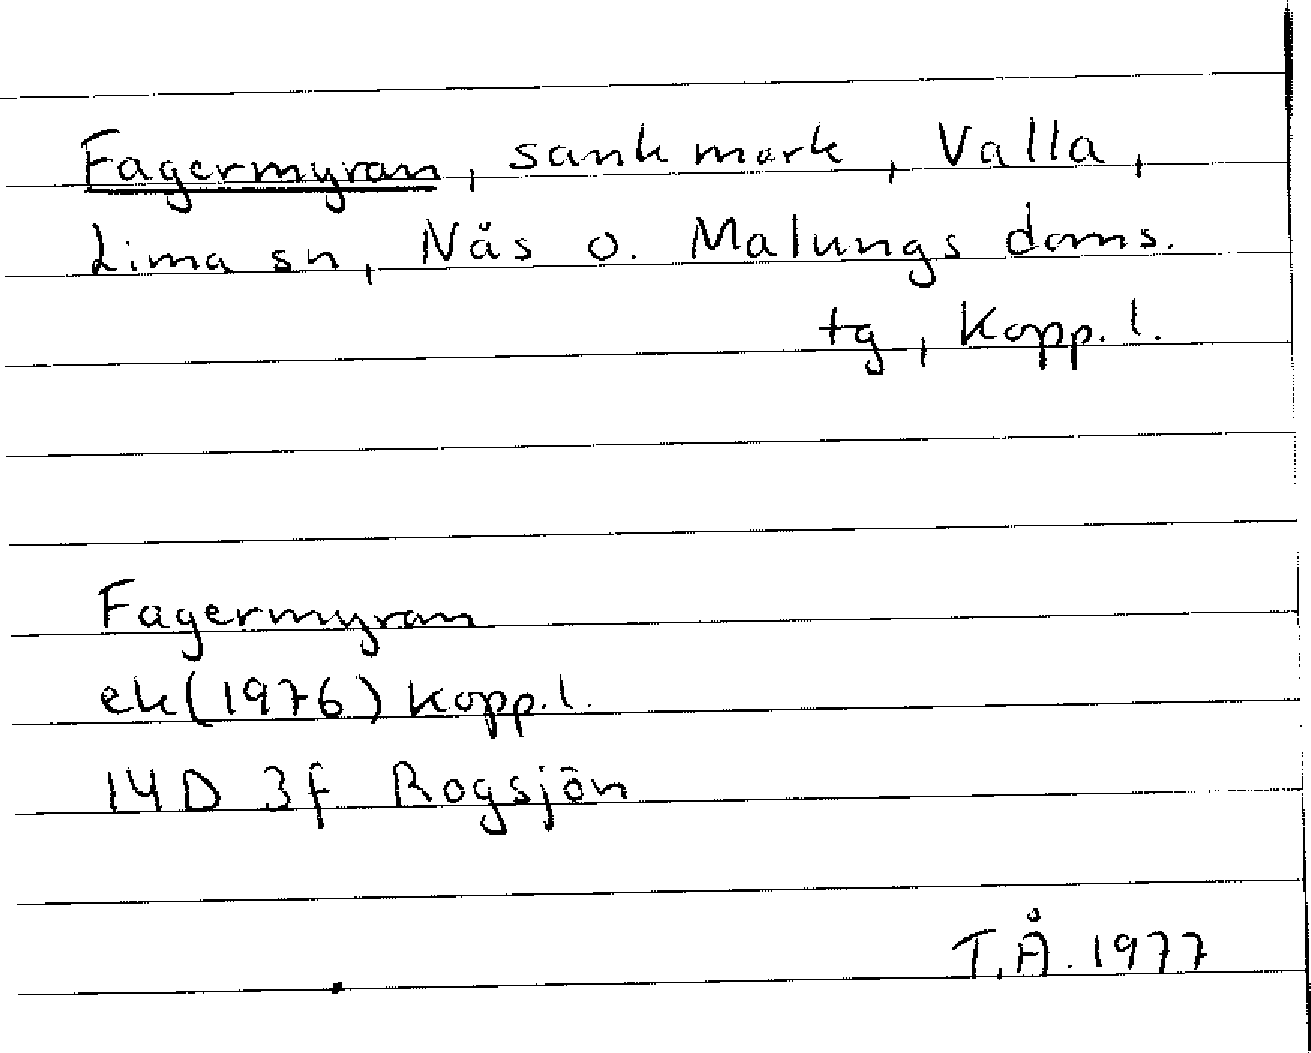 Fagermyran, sankmark, Valla,
Lima sn, Nås o. Malungs doms.
tg, Kopp. l.
Fagermyran
ek (1976) Kopp. l.
14D 3f Rogsjön
T.Å. 1977